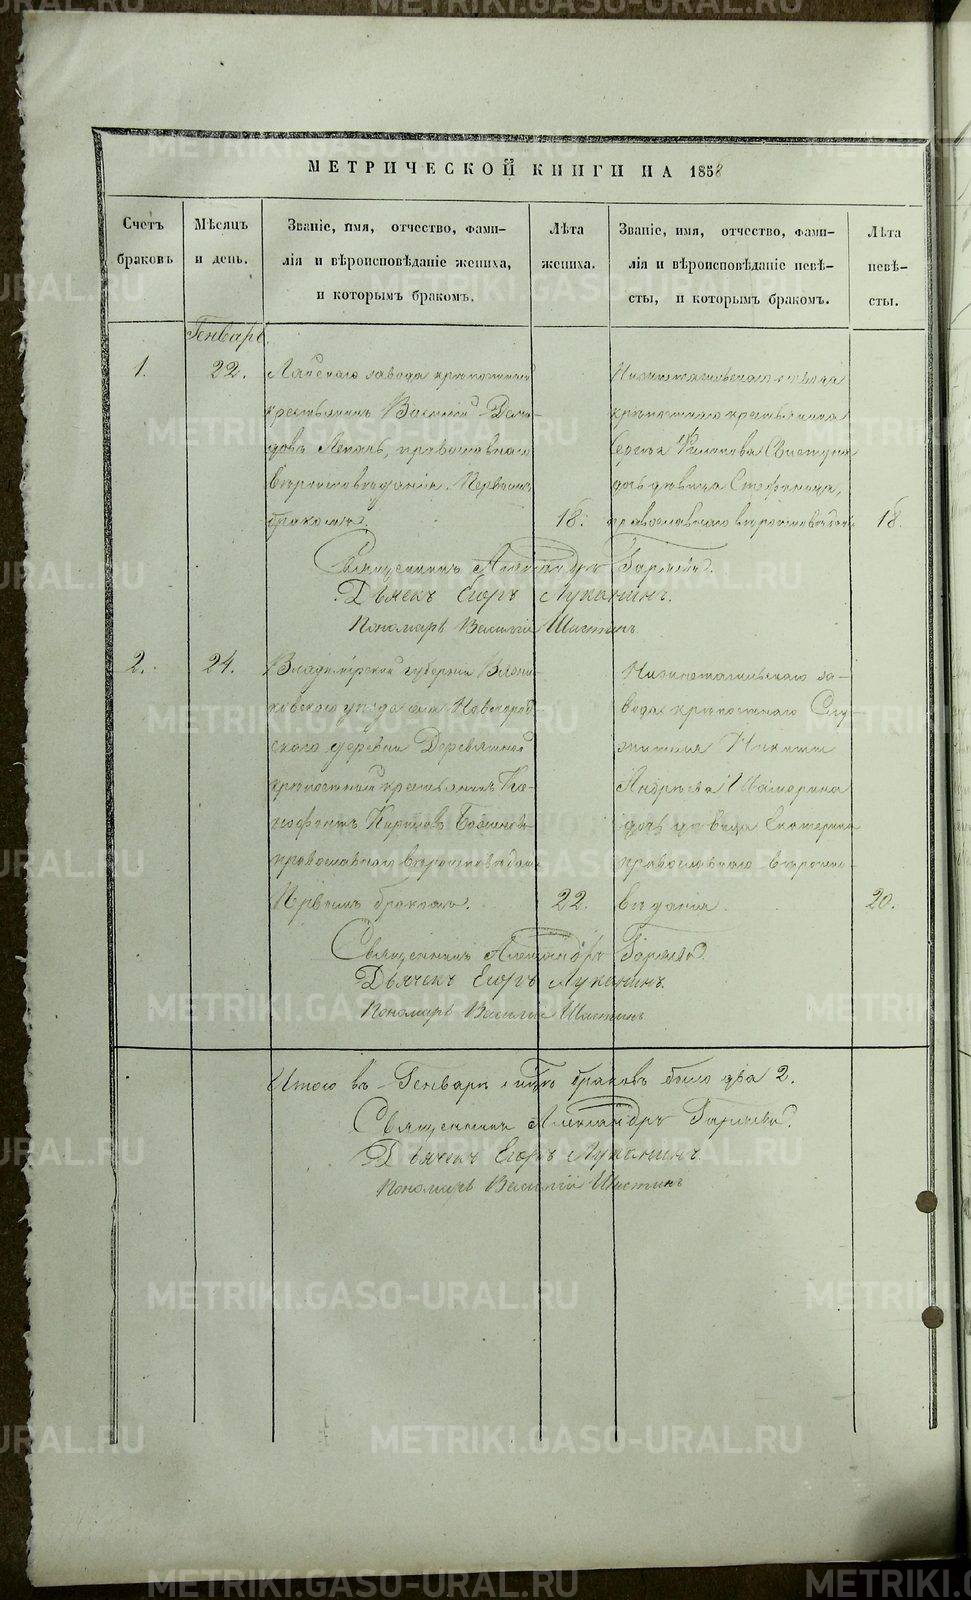 МЕТРИЧЕСКОЙ КНИГИ НА 1858
Счетъ браковъ
Мѣсяцъ и день.
Званіе, имя, отчество, фами-
лія и вѣроисповѣданіе жениха,
и которымъ бракомъ.
Лѣта
жениха.
Званіе, имя, отчество, фами-
лія и вѣроисповѣданіе невѣ-
сты, и которымъ бракомъ.
Лѣта
невѣ-
сты.
Генварь.
1.
22.
завода крѣпостный
крестьянинъ Василий Деми-
довъ православнаго
вѣроисповѣданія. Первымъ
бракомъ.
18.
Нижнотагильскаго завода
крѣпостнаго крестьянина
Сергѣя Филипова
дочь дѣвица Стефанида,
православнаго вѣроисповѣдан:
18.
Священникъ Александръ
Дьячекъ Егоръ Луканинъ.
Пономарь Василій Шастинъ
2.
24.
Владимірской губерніи Вязни-
ковскаго уѣзда села Новгород-
скаго деревни Деревянной
крѣпостный крестьянинъ Кса-
нофонтъ
православнаго вѣроисповѣдан:
Первымъ бракомъ.
22.
Нижнотагильскаго за-
вода крѣпостнаго Слу-
жителя Никиты
Андрѣева
дочь дѣвица Екатерина
православнаго вѣроиспо-
вѣданія.
20.
Священникъ Александръ
Дьячекъ Егоръ Луканинъ.
Пономарь Василій Шастинъ
Итого въ Генварѣ м-цѣ браковъ было два 2.
Священникъ Александръ
Дьячекъ Егоръ Луканинъ
Пономарь Василій Шастинъ
METRIKI.GASO-URAL.RU